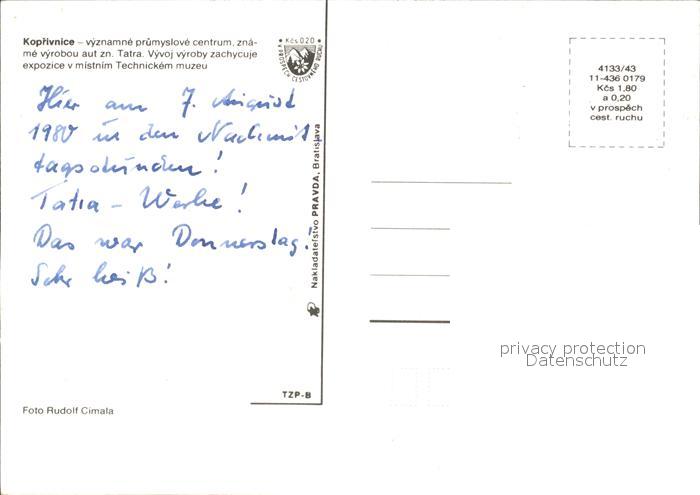 Kopřivnice – významné průmyslové centrum, zná-
mé výrobou aut zn. Tatra. Vývoj výroby zachycuje
expozice v místním Technickém muzeu
Kčs 0,20
Hier am 7. August
1980 in den Nachmit
tagsstunden!
Tatra - Werke!
Das war Donnerstag!
Sehr heiß!
Nakladatelstvo PRAVDA, Bratislava
TZP-B
Foto Rudolf Cimala
4133/43
11-436 0179
Kčs 1,80
a 0,20
v prospěch
cest. ruchu
privacy protection
Datenschutz